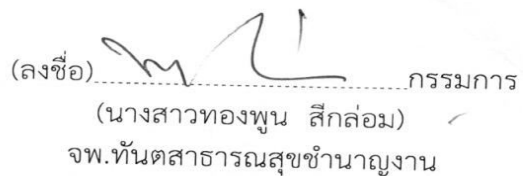 (ลงชื่อ)........................................กรรมการ
(นางสาวทองพูน สีกล่อม)
จพ.ทันตสาธารณสุขชำนาญงาน